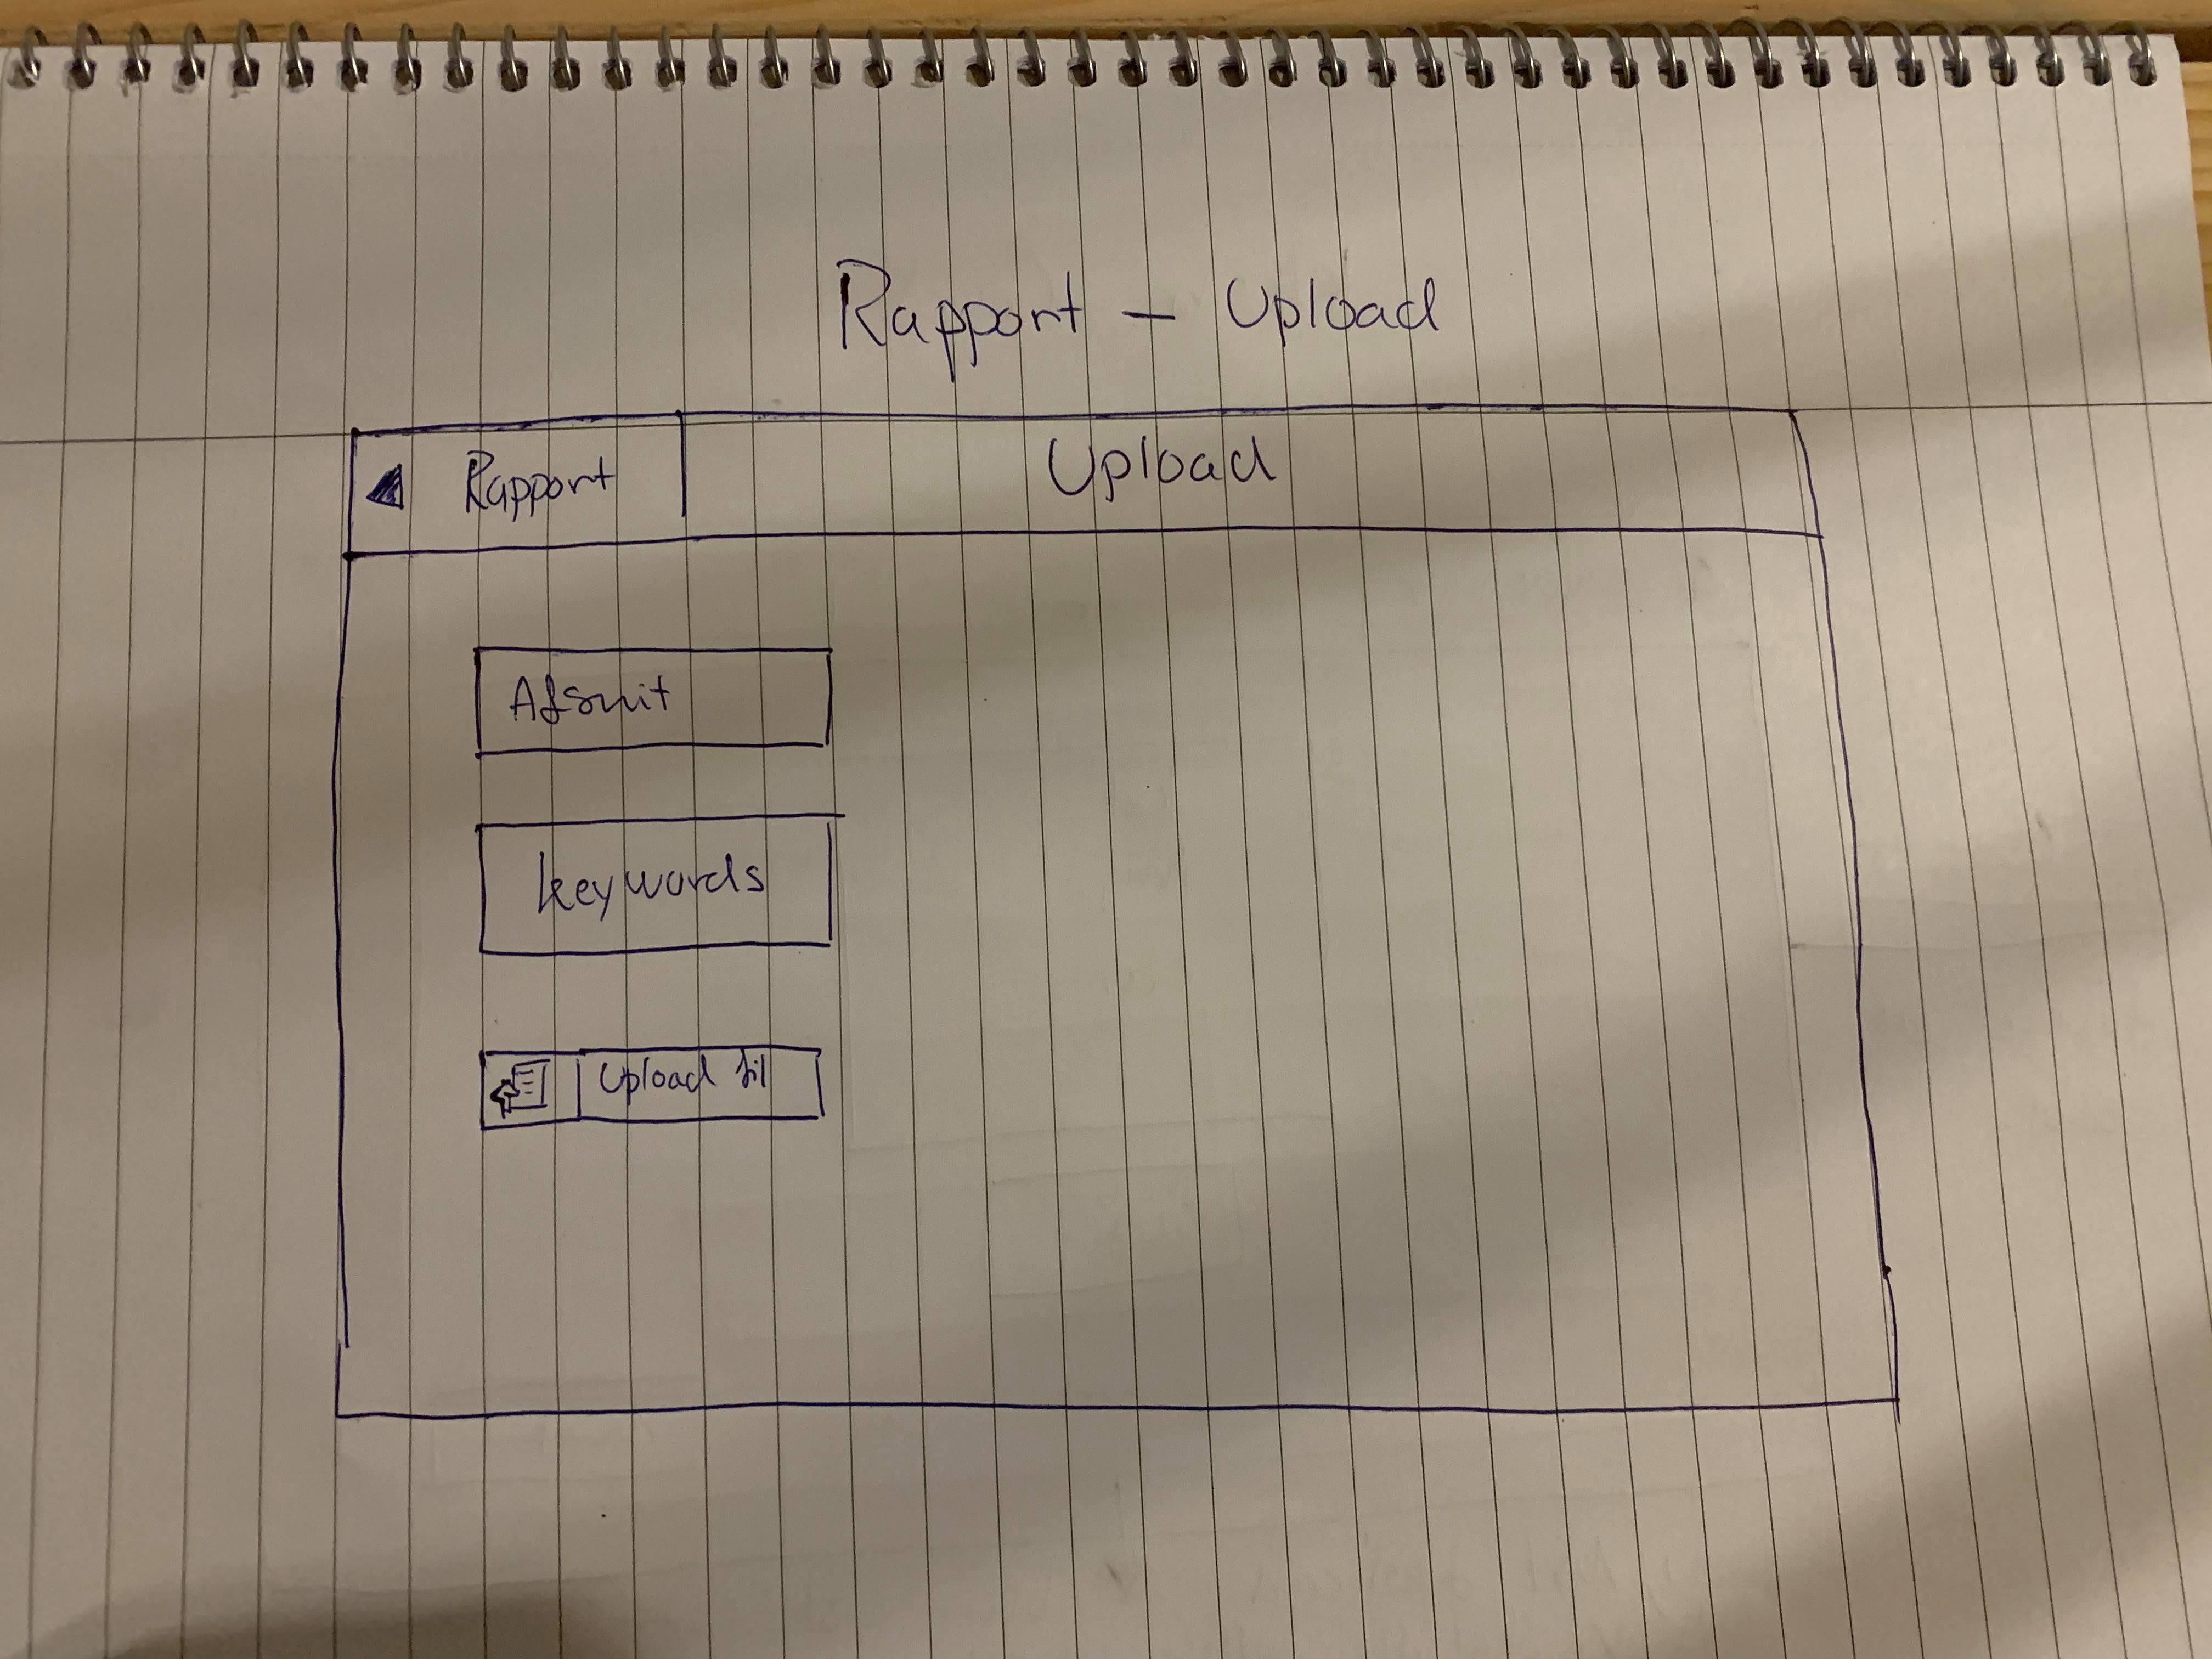 Rapport - Upload
Rapport
Upload
Afsnit
keywords
Upload fil